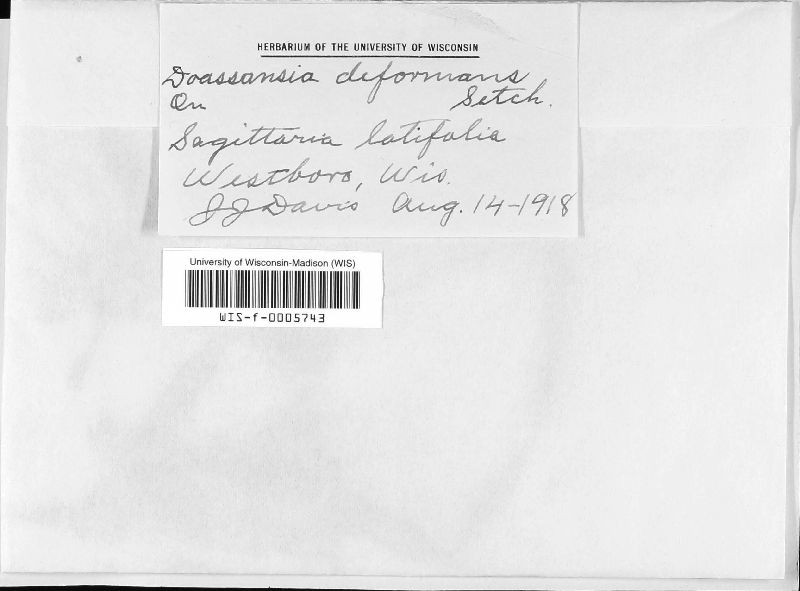 HERBARIUM OF THE UNIVERSITY OF WISCONSIN
Doassansia deformans
On Setch.
Sagittaria latifolia
Westboro, Wis.
J J Davis Aug. 14-1918
University of Wisconsin-Madison (WIS)
WIS-f-0005743